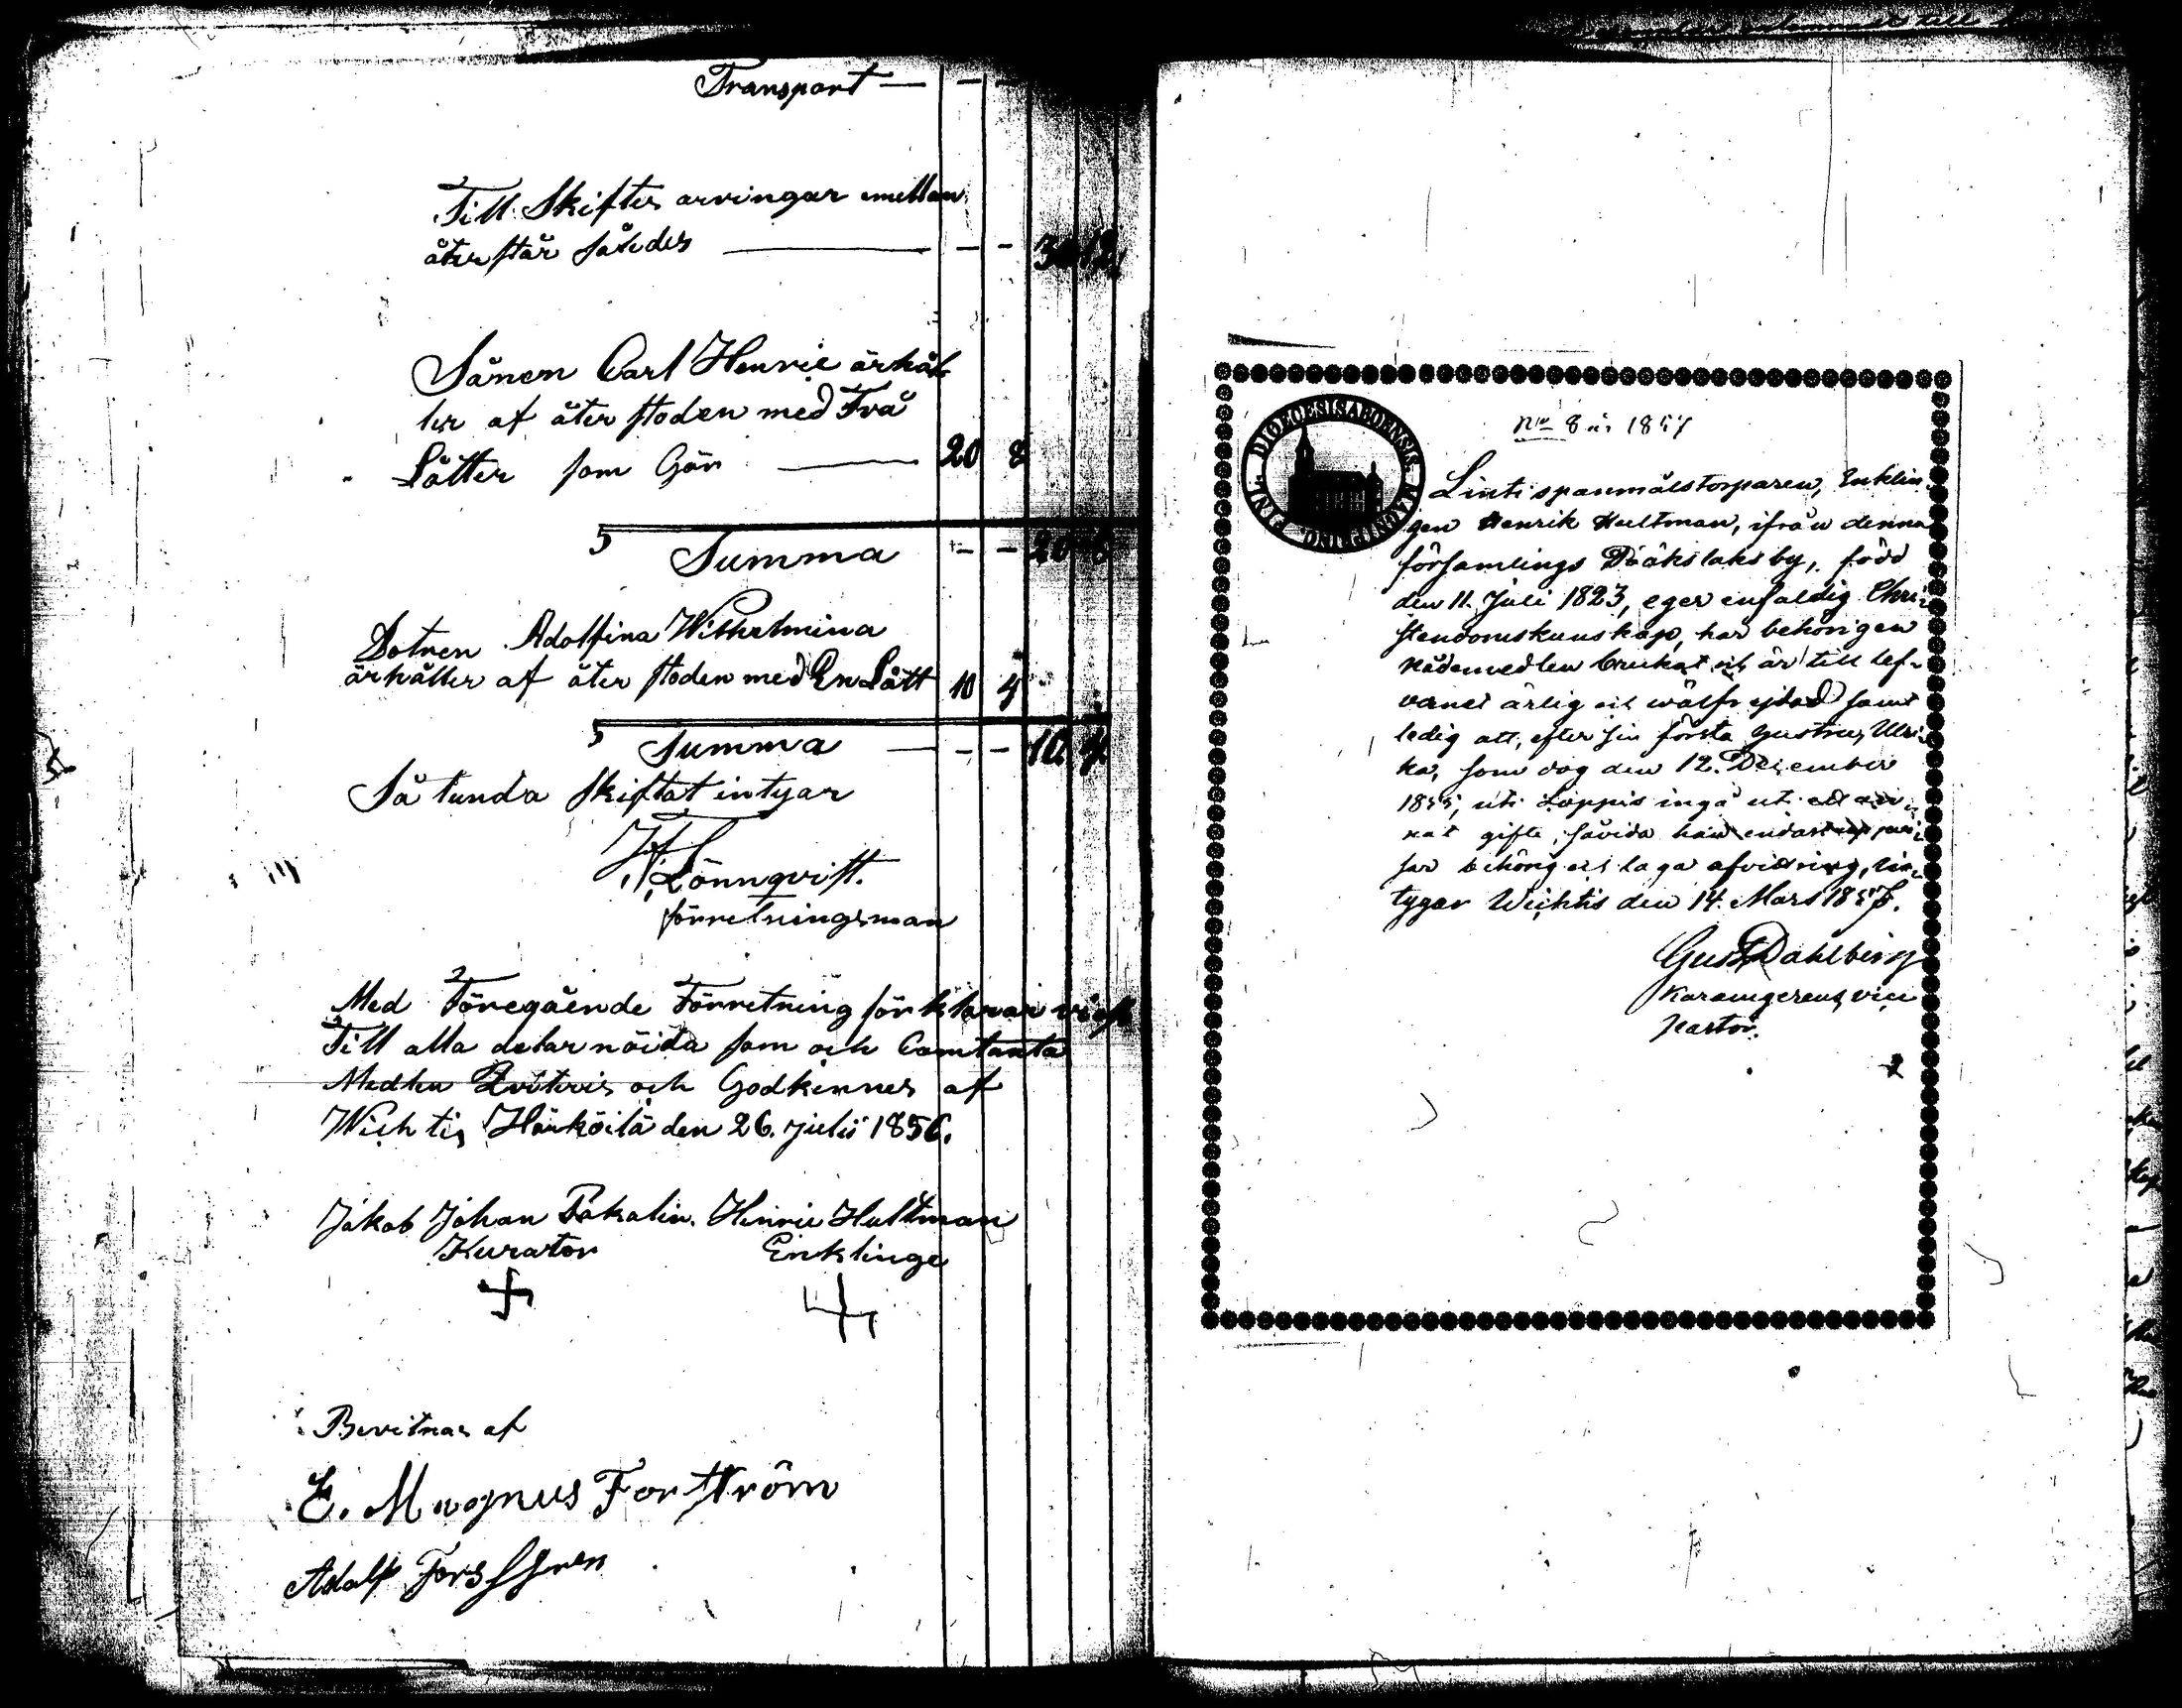 Transport — - -
Till Skiftes arvingar emellan
återstår således — - - 30 12
Sånen Carl Henric ärhål
ler af återstoden med Två
Låtter som Gör — 20 8
Summa - - 20 8
Dotren Adolfina Wilhelmina
ärhåller af återstoden med En Lått 10 4
Summa — - - 10 4
Så lunda Skiftat intygar
Lönnqvist.
förretningsman
Med Föregående Förretning förklarar
Till alla delar nöida som och
Medhu och Godkennes af
Wichtis Härköilä den 26. julii 1856.
Jakob Johan Henric Hultman
Kurator Enklinge
Bevitnas af
E. Magnus Forström
Adolf
DIOECESIS ABOENSIS MAGNI PRINC. FINL.
No 8 år 1857
Lintispanmälstorparen, Enklin-
gen Henrik Hultman, ifrån denna
församlings by, född
den 11. Juli 1823, eger enfaldig Chri-
stendomskunskap, har behörigen
nådemedlen brukat och är till lef-
vernet ärlig och wälfrejdad samt
ledig att, efter sin första hustru, Ulri-
ka, som dog den 12. December
1855, uti Loppis ingå uti ett an-
nat gifte, såvida han endast
ser behörig och laga afvittring, in-
tygar Wichtis den 14. Mars 1857.
Gust. Dahlberg
vice
Pastor.